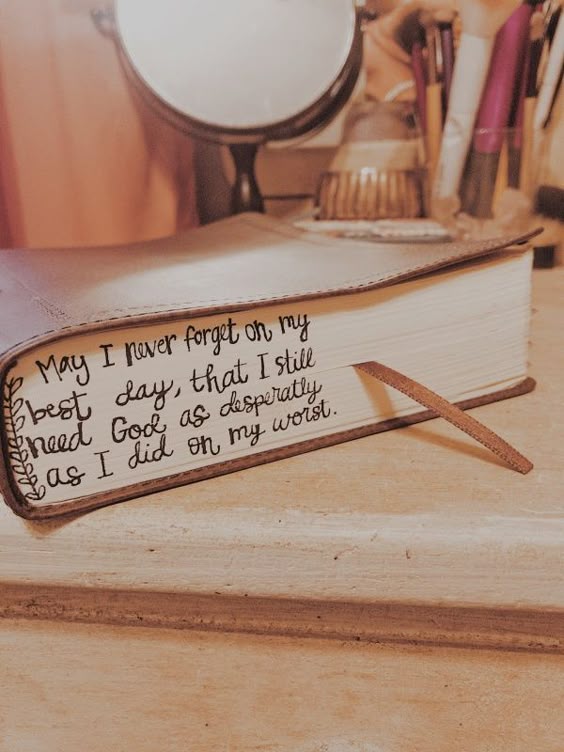 May I never forget on my
best day, that I still
need God as desperatly
as I did on my worst.